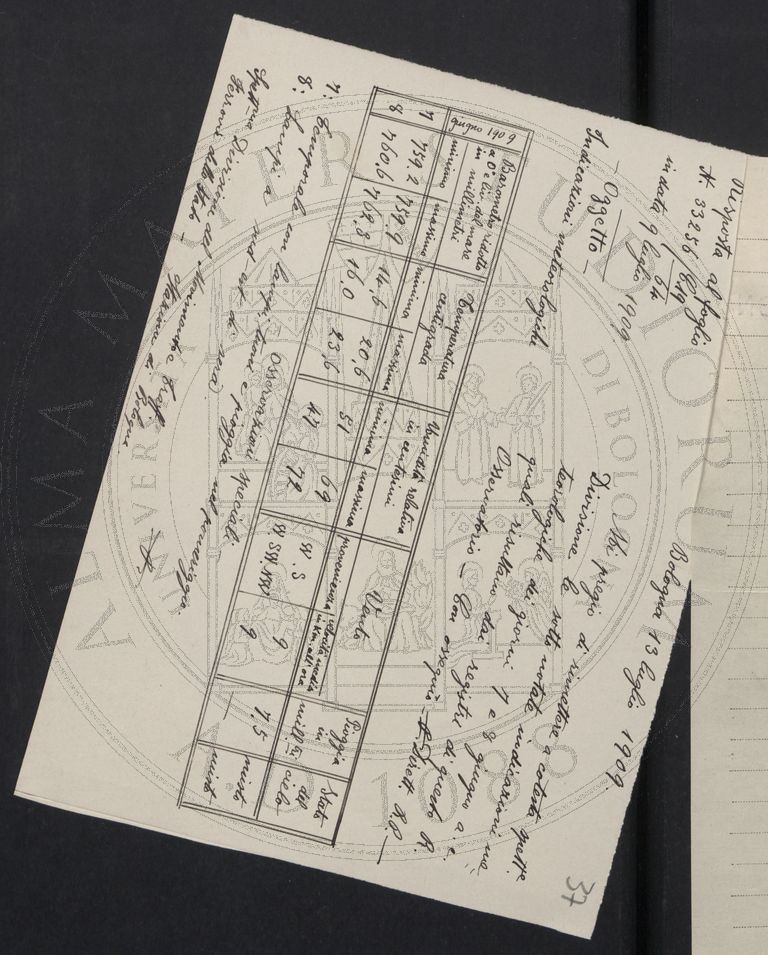 Bologna 13 luglio 1909.
Risposta al foglio
N. 33256/819 64
in data 9 luglio 1909
Oggetto
Indicazioni meteorologiche
Mi pregio di rimettere a cotesta spett.
Divisione le sotto notate indicazioni me-
teorologiche dei giorni 7 e 8 giugno a. c.
quali risultano dai registri di questo R.
Osservatorio – Con ossequio – Il Dirett.
giugno 1909 | Barometro ridotto a 0° e liv. del mare in millimetri | Temperatura centigrada | Umidità relativa in centesimi | Vento | Pioggia in mill. | Stato del cielo
minimo | massimo | minima | massima | minima | massima | provenienza | velocità media in Km. all'ora
7 | 757.2 | 759.9 | 14.6 | 20.6 | 51 | 69 | W. S | 9 | 7.5 | misto
8 | 760.6 | 762.8 | 16.0 | 25.6 | 47 | 72 | W. SW. NW | 9 | — | misto
Osservazioni speciali.
7: Temporale con lampi, tuoni e pioggia nel pomeriggio.
8: Lampi a di sera
Spettabile Divisione del Movimento e Traffico
Ferrovie dello Stato –
Stazione di Bologna
37
ALMA MATER STUDIORUM
UNIVERSITÀ DI BOLOGNA
A.D. 1088